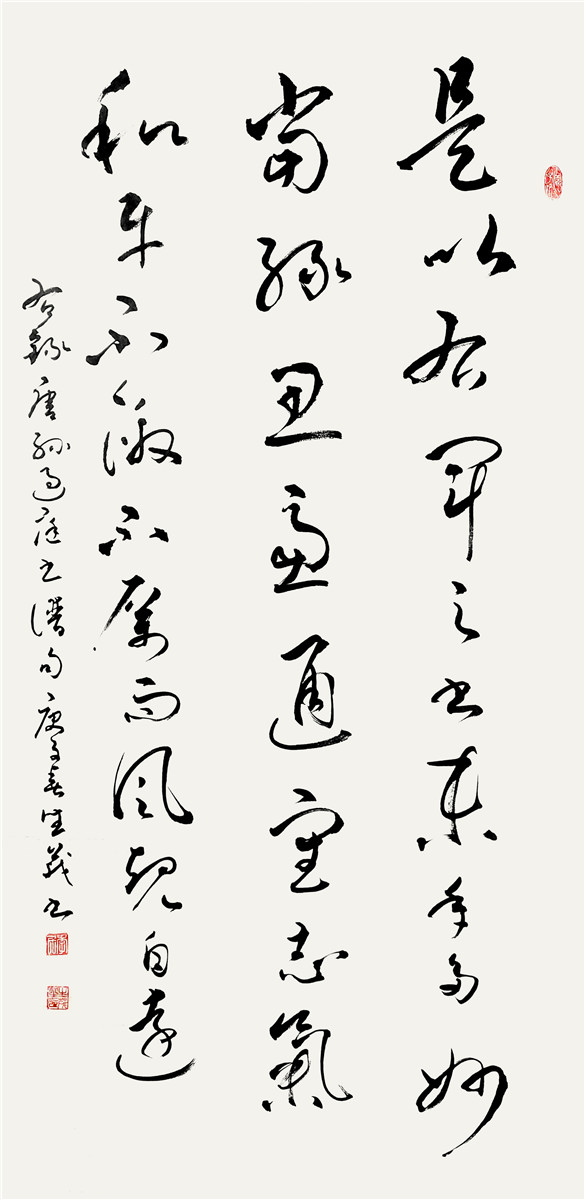 是以右軍之書末年多妙
當緣思慮通審志氣
和平不激不厲而風規自遠
右錄唐孫過庭書譜句庚子春義書